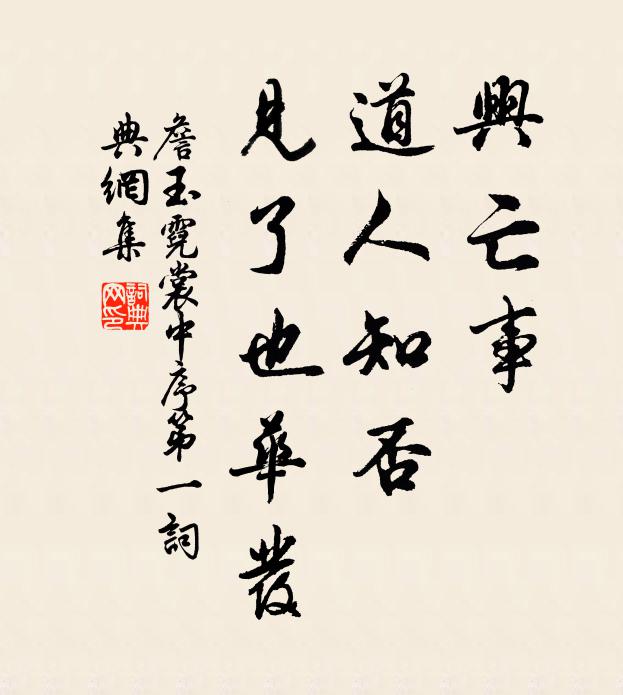 興亡事
道人知否
見了也華發
詹玉霓裳中序第一詞
典網集
詞典
网印